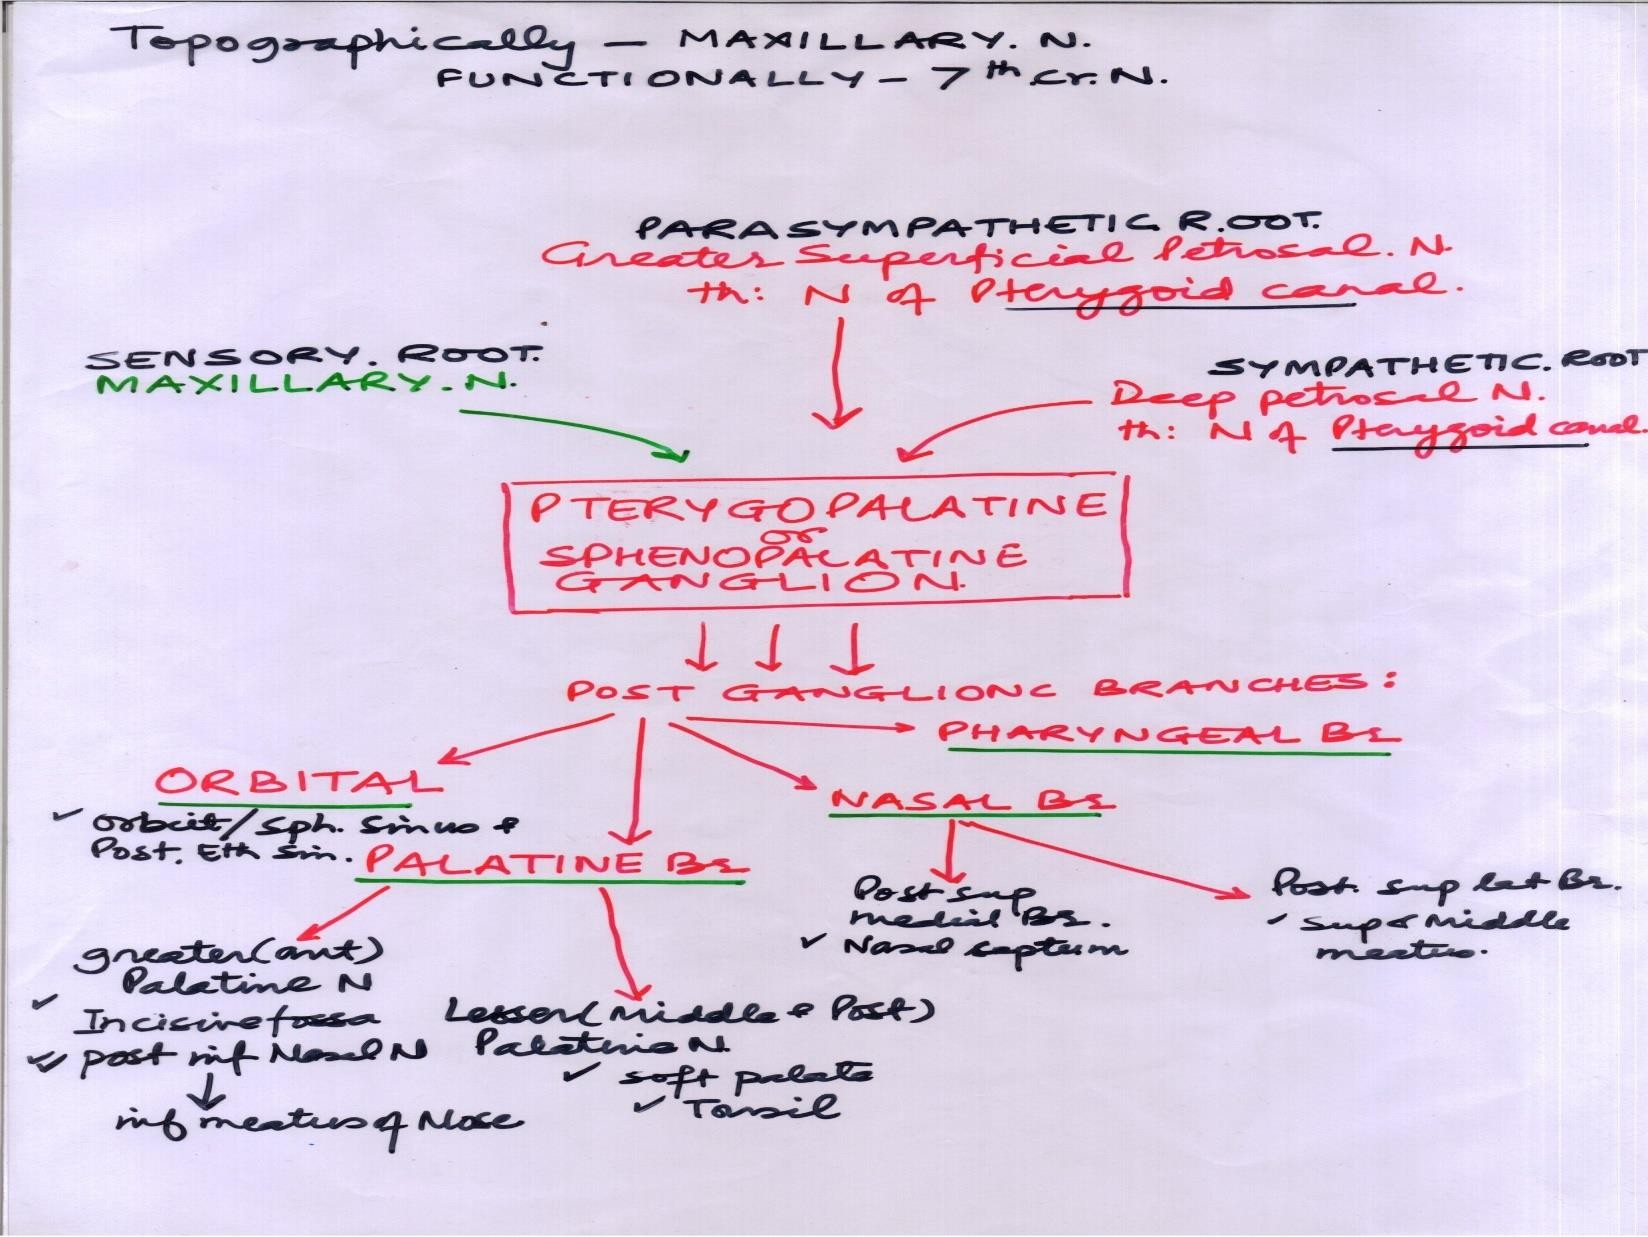 Topographically – MAXILLARY. N.
FUNCTIONALLY – 7th Cr. N.
PARASYMPATHETIC ROOT.
Greater Superficial Petrosal. N.
th: N of Pterygoid canal.
SENSORY. ROOT.
MAXILLARY. N.
SYMPATHETIC. ROOT
Deep petrosal N.
th: N of Pterygoid canal.
PTERYGOPALATINE
or
SPHENOPALATINE
GANGLION.
POST GANGLIONC BRANCHES:
PHARYNGEAL Br
ORBITAL
✓ orbit/sph. sinus &
Post. Eth sin.
NASAL Br
PALATINE Br
Post sup
medial Br.
✓ Nasal septum
Post. sup lat Br.
✓ Sup & Middle
meatus.
greater(ant)
Palatine N
✓ Incisive fossa
✓ post inf Nasal N
inf meatus of Nose
Lesser(Middle & Post)
Palatine N.
✓ soft palate
✓ Tonsil